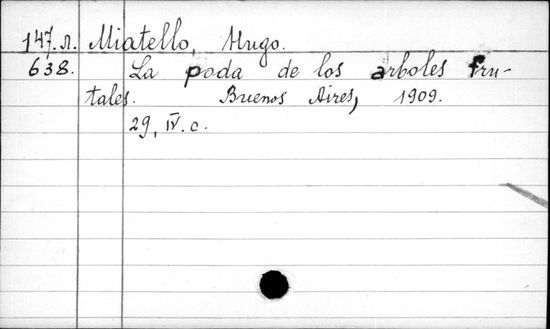 147.л. Miatello, Hugo.
638. La poda de los arboles fru-
tales. Buenos Aires, 1909.
29, IV. c.